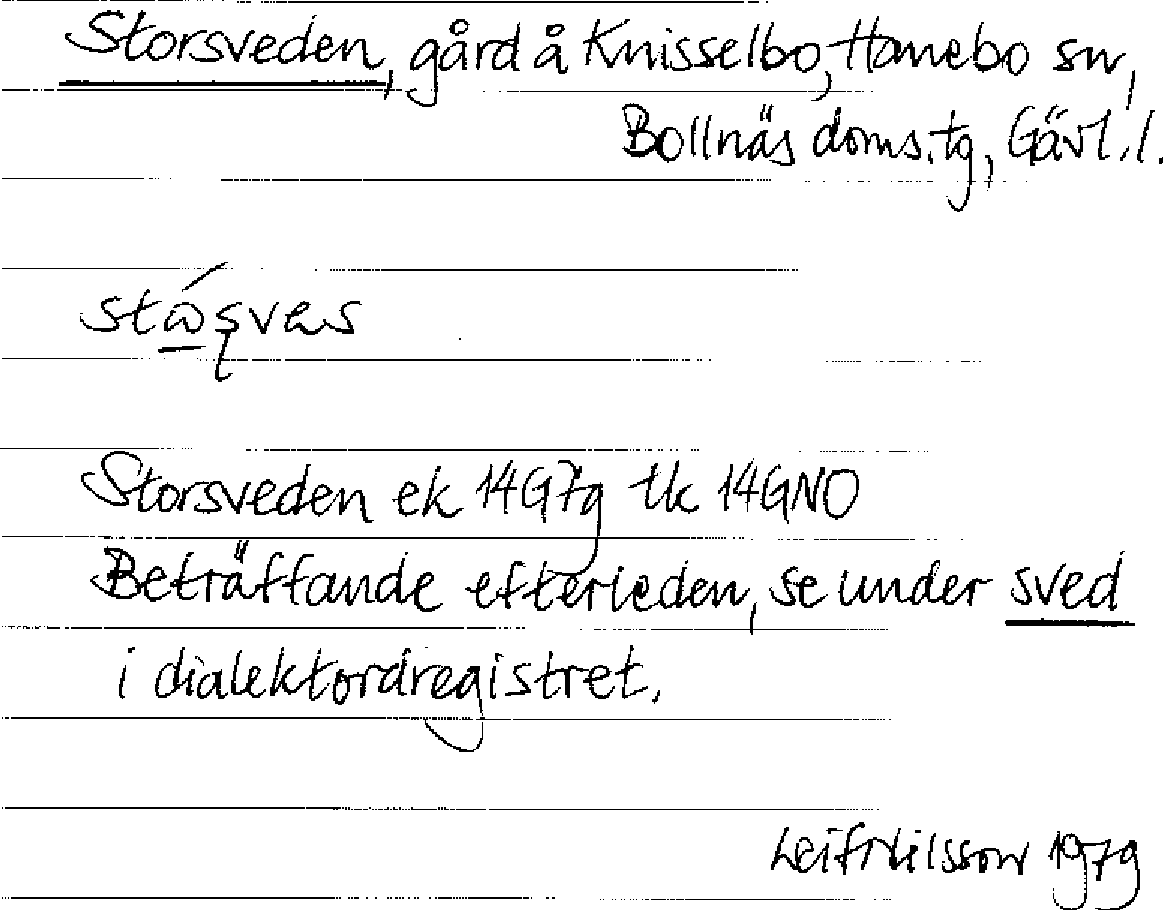 Storsveden, gård å Knisselbo, Hanebo sn,
Bollnäs doms.tg, Gävl.l.
Storsveden ek 14G7g tk 14GNO
Beträffande efterleden, se under sved
i dialektordregistret.
Leif Nilsson 1979